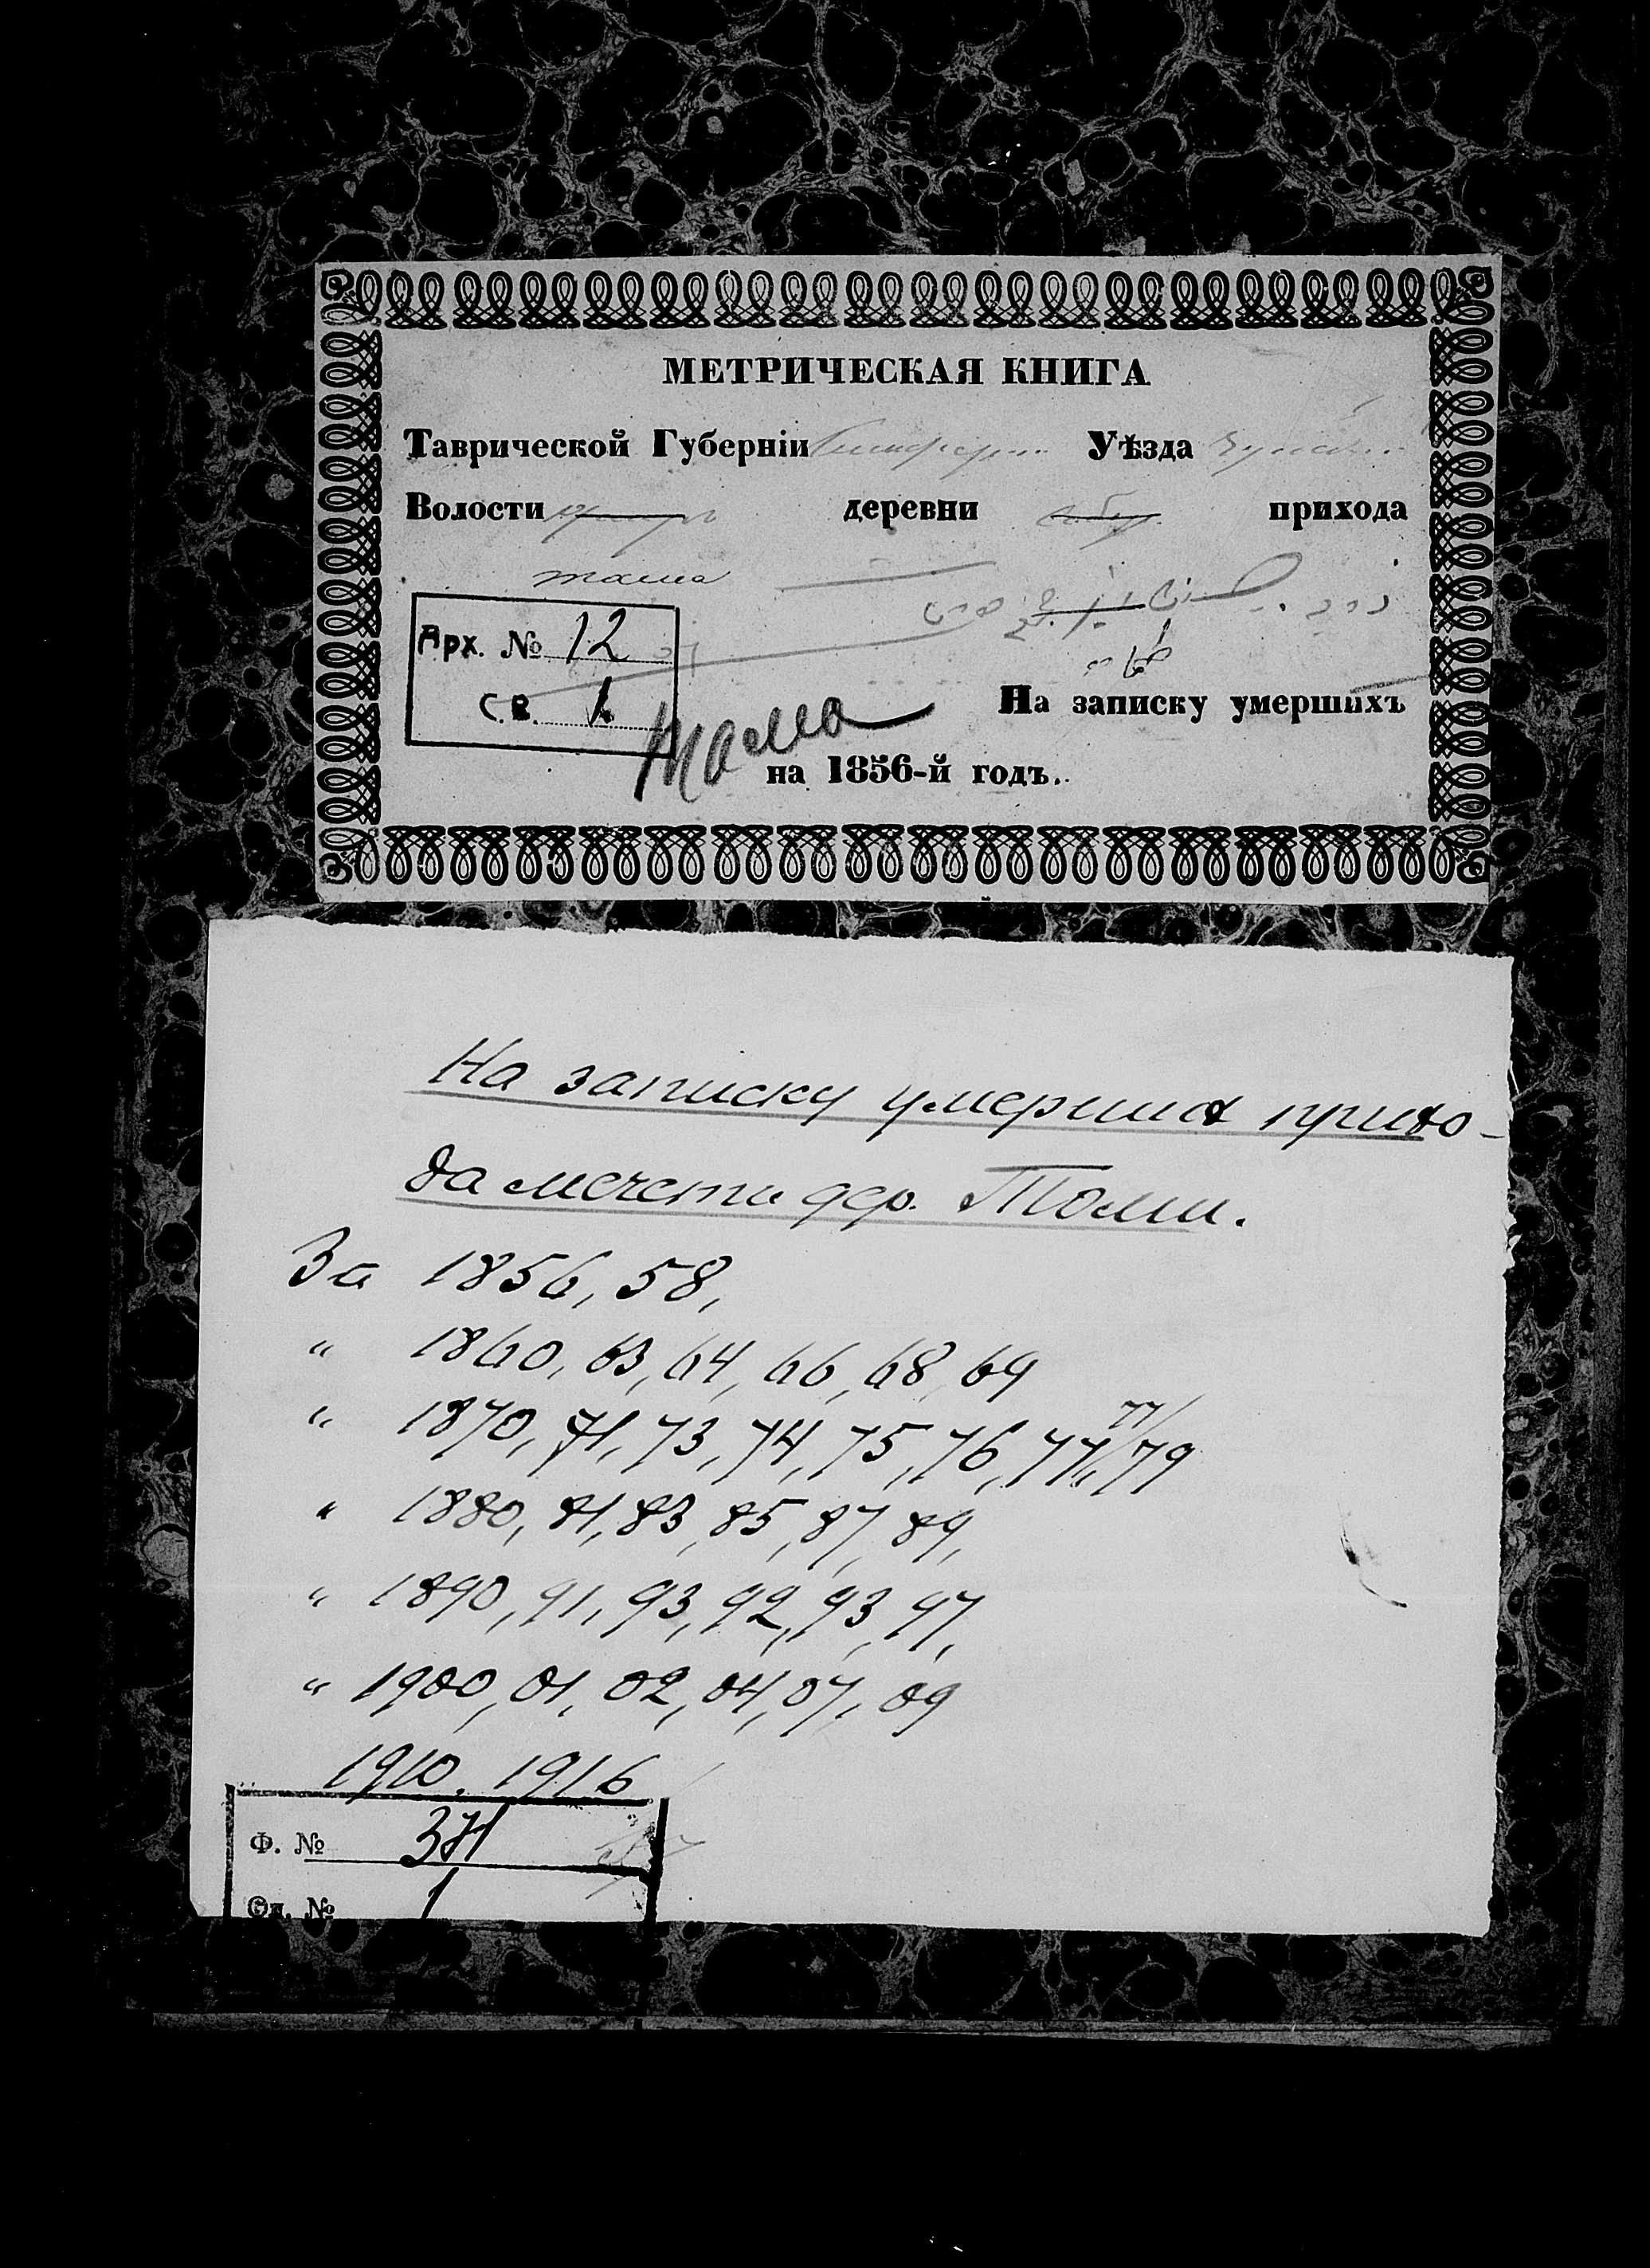 МЕТРИЧЕСКАЯ КНИГА
Таврической Губерніи Уѣзда
Волости деревни прихода
тама
Арх. № 12
св. 1.
На записку умершихъ
Тама
на 1856-й годъ.
На записку умерших прихо-
да мечети дер. Томи.
За 1856, 58,
" 1860, 63, 64, 66, 68, 69
" 1870, 71, 73, 74, 75, 76, 77, 77/79
" 1880, 81, 83, 85, 87, 89,
" 1890, 91, 93, 92, 93, 97,
" 1900, 01, 02, 04, 07, 09
1910. 1916
Ф. № 371
Оп. № 1